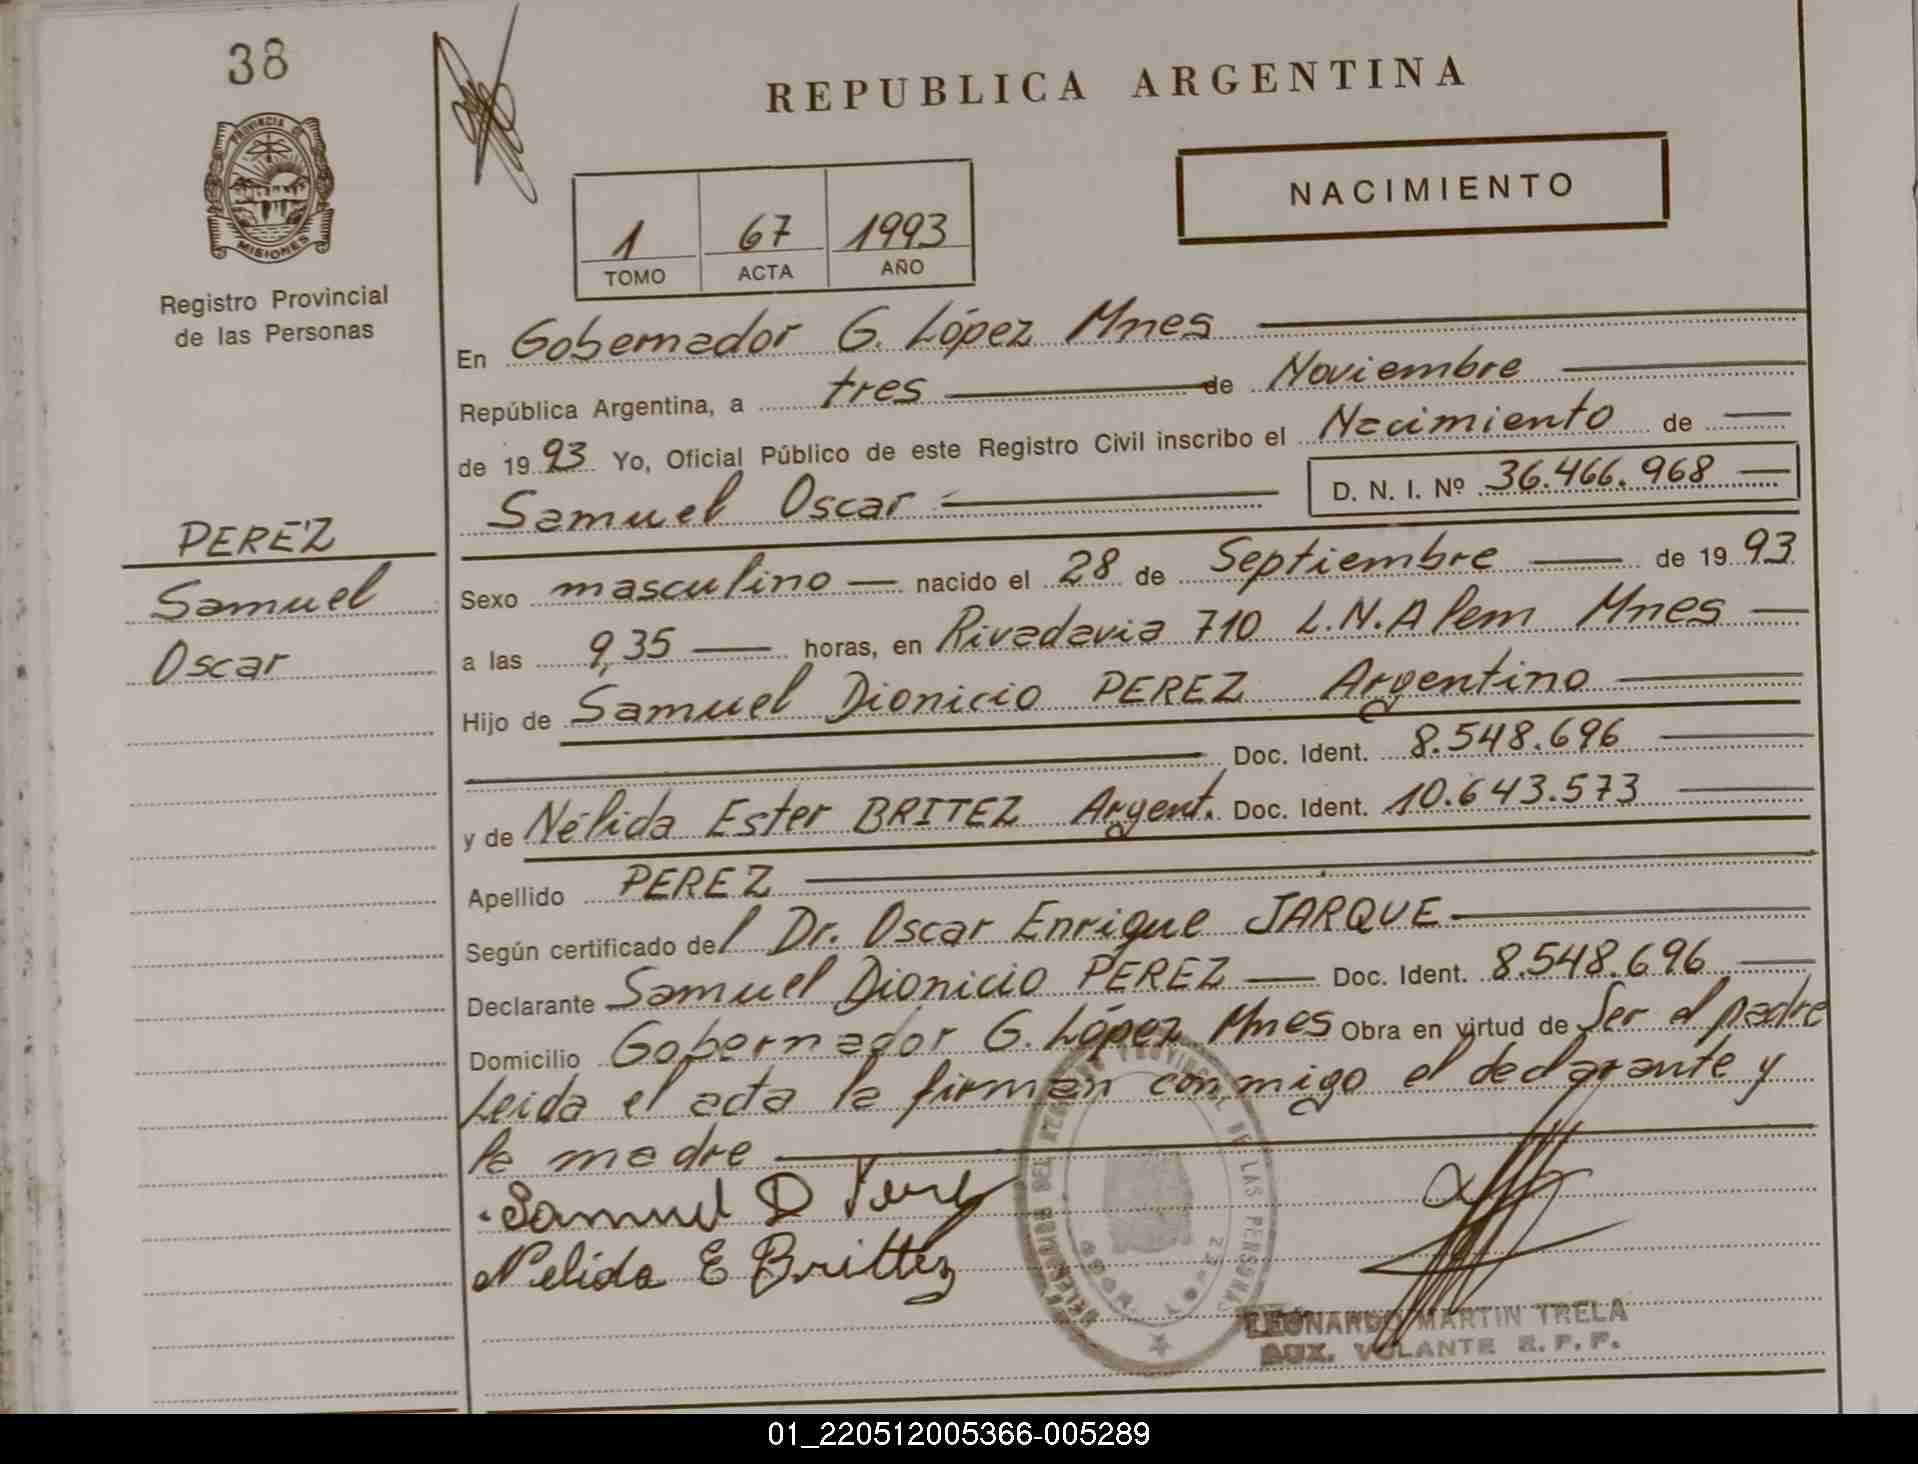 38
PROVINCIA DE
MISIONES
Registro Provincial
de las Personas
PEREZ
Samuel
Oscar
REPUBLICA ARGENTINA
NACIMIENTO
1 67 1993
TOMO ACTA AÑO
En Gobernador G. López Mnes
República Argentina, a tres de Noviembre
de 1993 Yo, Oficial Público de este Registro Civil inscribo el Nacimiento de
Samuel Oscar D. N. I. Nº 36.466.968
Sexo masculino nacido el 28 de Septiembre de 1993
a las 9,35 horas, en Rivadavia 710 L.N.Alem Mnes
Hijo de Samuel Dionicio PEREZ Argentino
Doc. Ident. 8.548.696
y de Nélida Ester BRITEZ Argent. Doc. Ident. 10.643.573
Apellido PEREZ
Según certificado del Dr. Oscar Enrique JARQUE
Declarante Samuel Dionicio PEREZ Doc. Ident. 8.548.696
Domicilio Gobernador G. López Mnes Obra en virtud de Ser el padre
Leida el acta la firman conmigo el declarante y
la madre
Samuel D Perez
Nelida E Brittez
PROVINCIAL DE LAS PERSONAS
LEONARDO MARTIN TRELA
AUX. VOLANTE R. P. P.
01_220512005366-005289